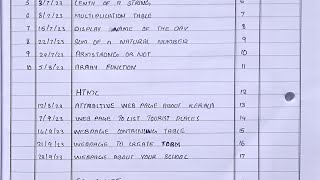 5 8/7/23 LENTH OF A STRING, 6
6 9/7/23 MULTIPLICATION TABLE 7
7 15/7/23 DISPLAY NAME OF THE DAY 8
8 22/7/23 SUM OF A NATURAL NUMBER 9
9 29/7/23 ARMSTRONG OR NOT 10
10 5/8/23 ARARY FUNCTION 11
HTML 12
12/8/23 ATTRIBITIVE WEB PAGE ABOUT KERALA 13
7/9/23 WEB PAGE TO LIST TOURIST PLACES 14
16/9/23 WEBPAGE CONTAINING TABLE 15
21/9/23 WEBPAGE TO CREATE FORM 16
28/9/23 WEBPAGE ABOUT YOUR SCHOOL 17